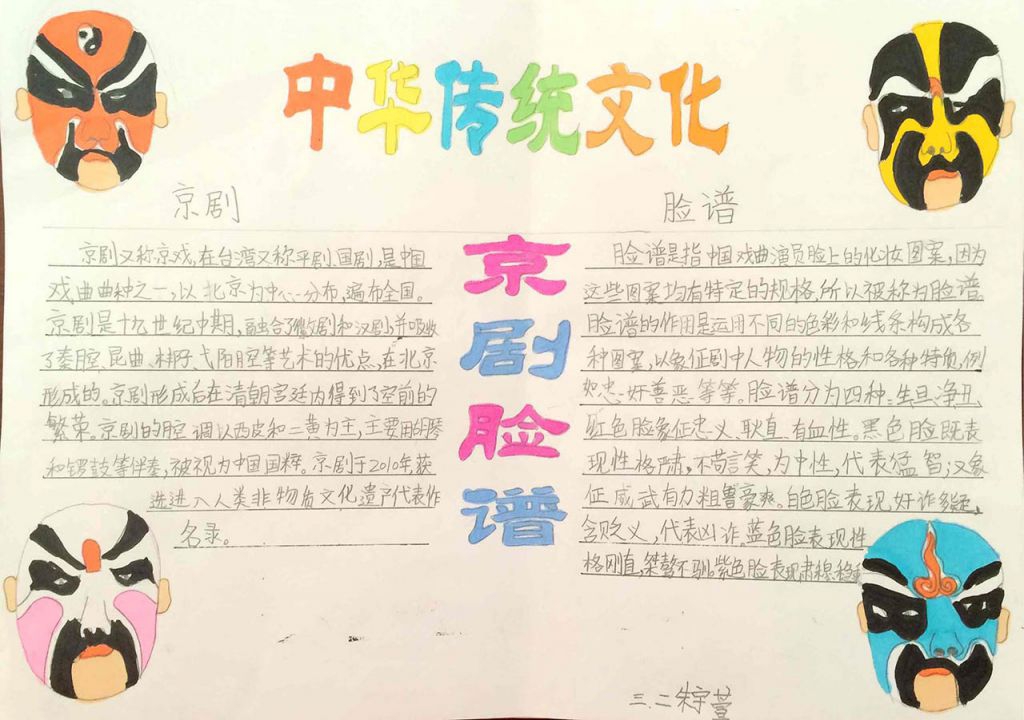 中华传统文化
京剧
京剧又称京戏,在台湾又称平剧、国剧,是中国
戏曲曲种之一,以北京为中心分布,遍布全国。
京剧是十九世纪中期,融合了徽剧和汉剧,并吸收
了秦腔、昆曲、梆子、弋阳腔等艺术的优点,在北京
形成的。京剧形成后在清朝宫廷内得到了空前的
繁荣。京剧的腔调以西皮和二黄为主,主要用胡琴
和锣鼓等伴奏,被视为中国国粹。京剧于2010年获
选进入人类非物质文化遗产代表作
名录。
京剧脸谱
脸谱
脸谱是指中国戏曲演员脸上的化妆图案,因为
这些图案均有特定的规格,所以被称为脸谱。
脸谱的作用是运用不同的色彩和线条构成各
种图案,以象征剧中人物的性格和各种特质,例
如忠、奸善恶等等。脸谱分为四种:生旦、净丑、
红色脸象征忠义、耿直、有血性。黑色脸既表
现性格严肃,不苟言笑,为中性,代表猛智;又象
征威武有力粗鲁豪爽。白色脸表现奸诈多疑,
含贬义,代表凶诈。蓝色脸表现性
格刚直,桀骜不驯。紫色脸表现肃穆、稳
三.二朱宇萱